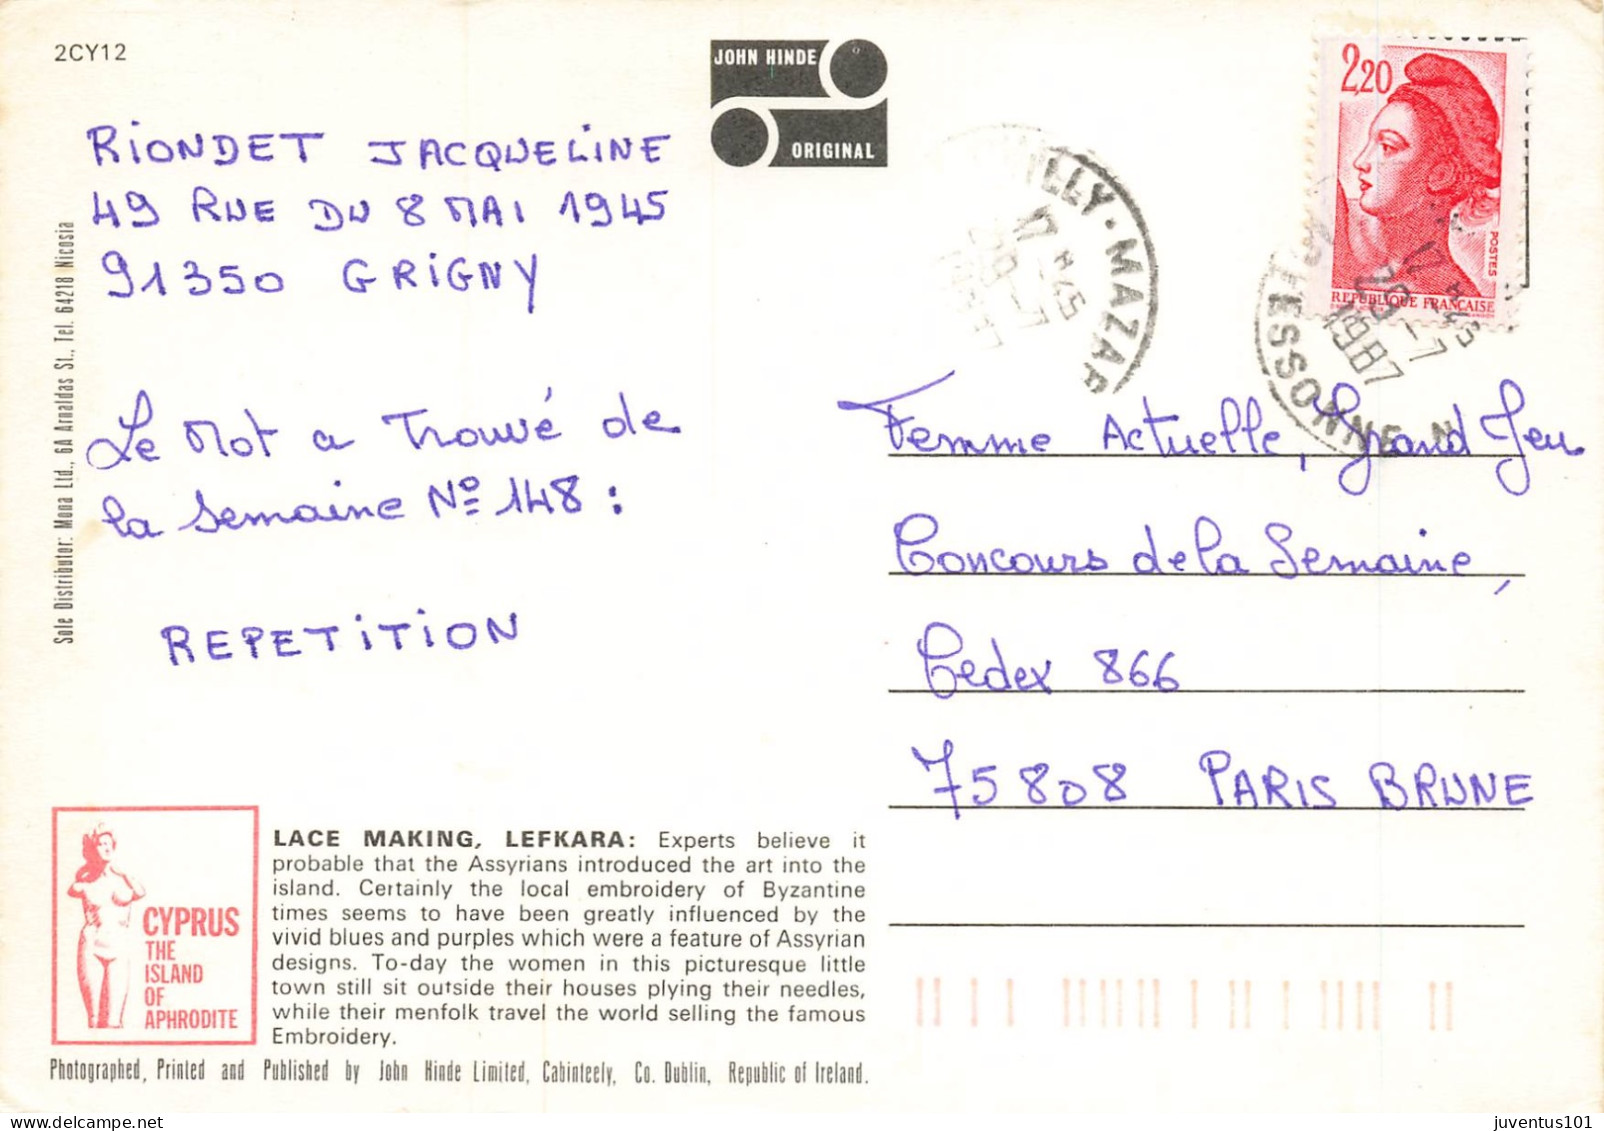 2CY12
JOHN HINDE
ORIGINAL
2,20
POSTES
REPUBLIQUE FRANÇAISE
LLY-MAZAR
17 H 45
ESSONNE
17 H 45
29-7
1987
RIONDET JACQUELINE
49 RUE DU 8 MAI 1945
91350 GRIGNY
Le Mot a Trouvé de
la Semaine N° 148 :
REPETITION
Femme Actuelle, Grand Jeu
Concours de la Semaine,
Cedex 866
75808 PARIS BRUNE
Sole Distributor: Mona Ltd., 6A Arnaldas St., Tel. 64218 Nicosia
CYPRUS
THE
ISLAND
OF
APHRODITE
LACE MAKING, LEFKARA: Experts believe it
probable that the Assyrians introduced the art into the
island. Certainly the local embroidery of Byzantine
times seems to have been greatly influenced by the
vivid blues and purples which were a feature of Assyrian
designs. To-day the women in this picturesque little
town still sit outside their houses plying their needles,
while their menfolk travel the world selling the famous
Embroidery.
Photographed, Printed and Published by John Hinde Limited, Cabinteely, Co. Dublin, Republic of Ireland.
juventus101